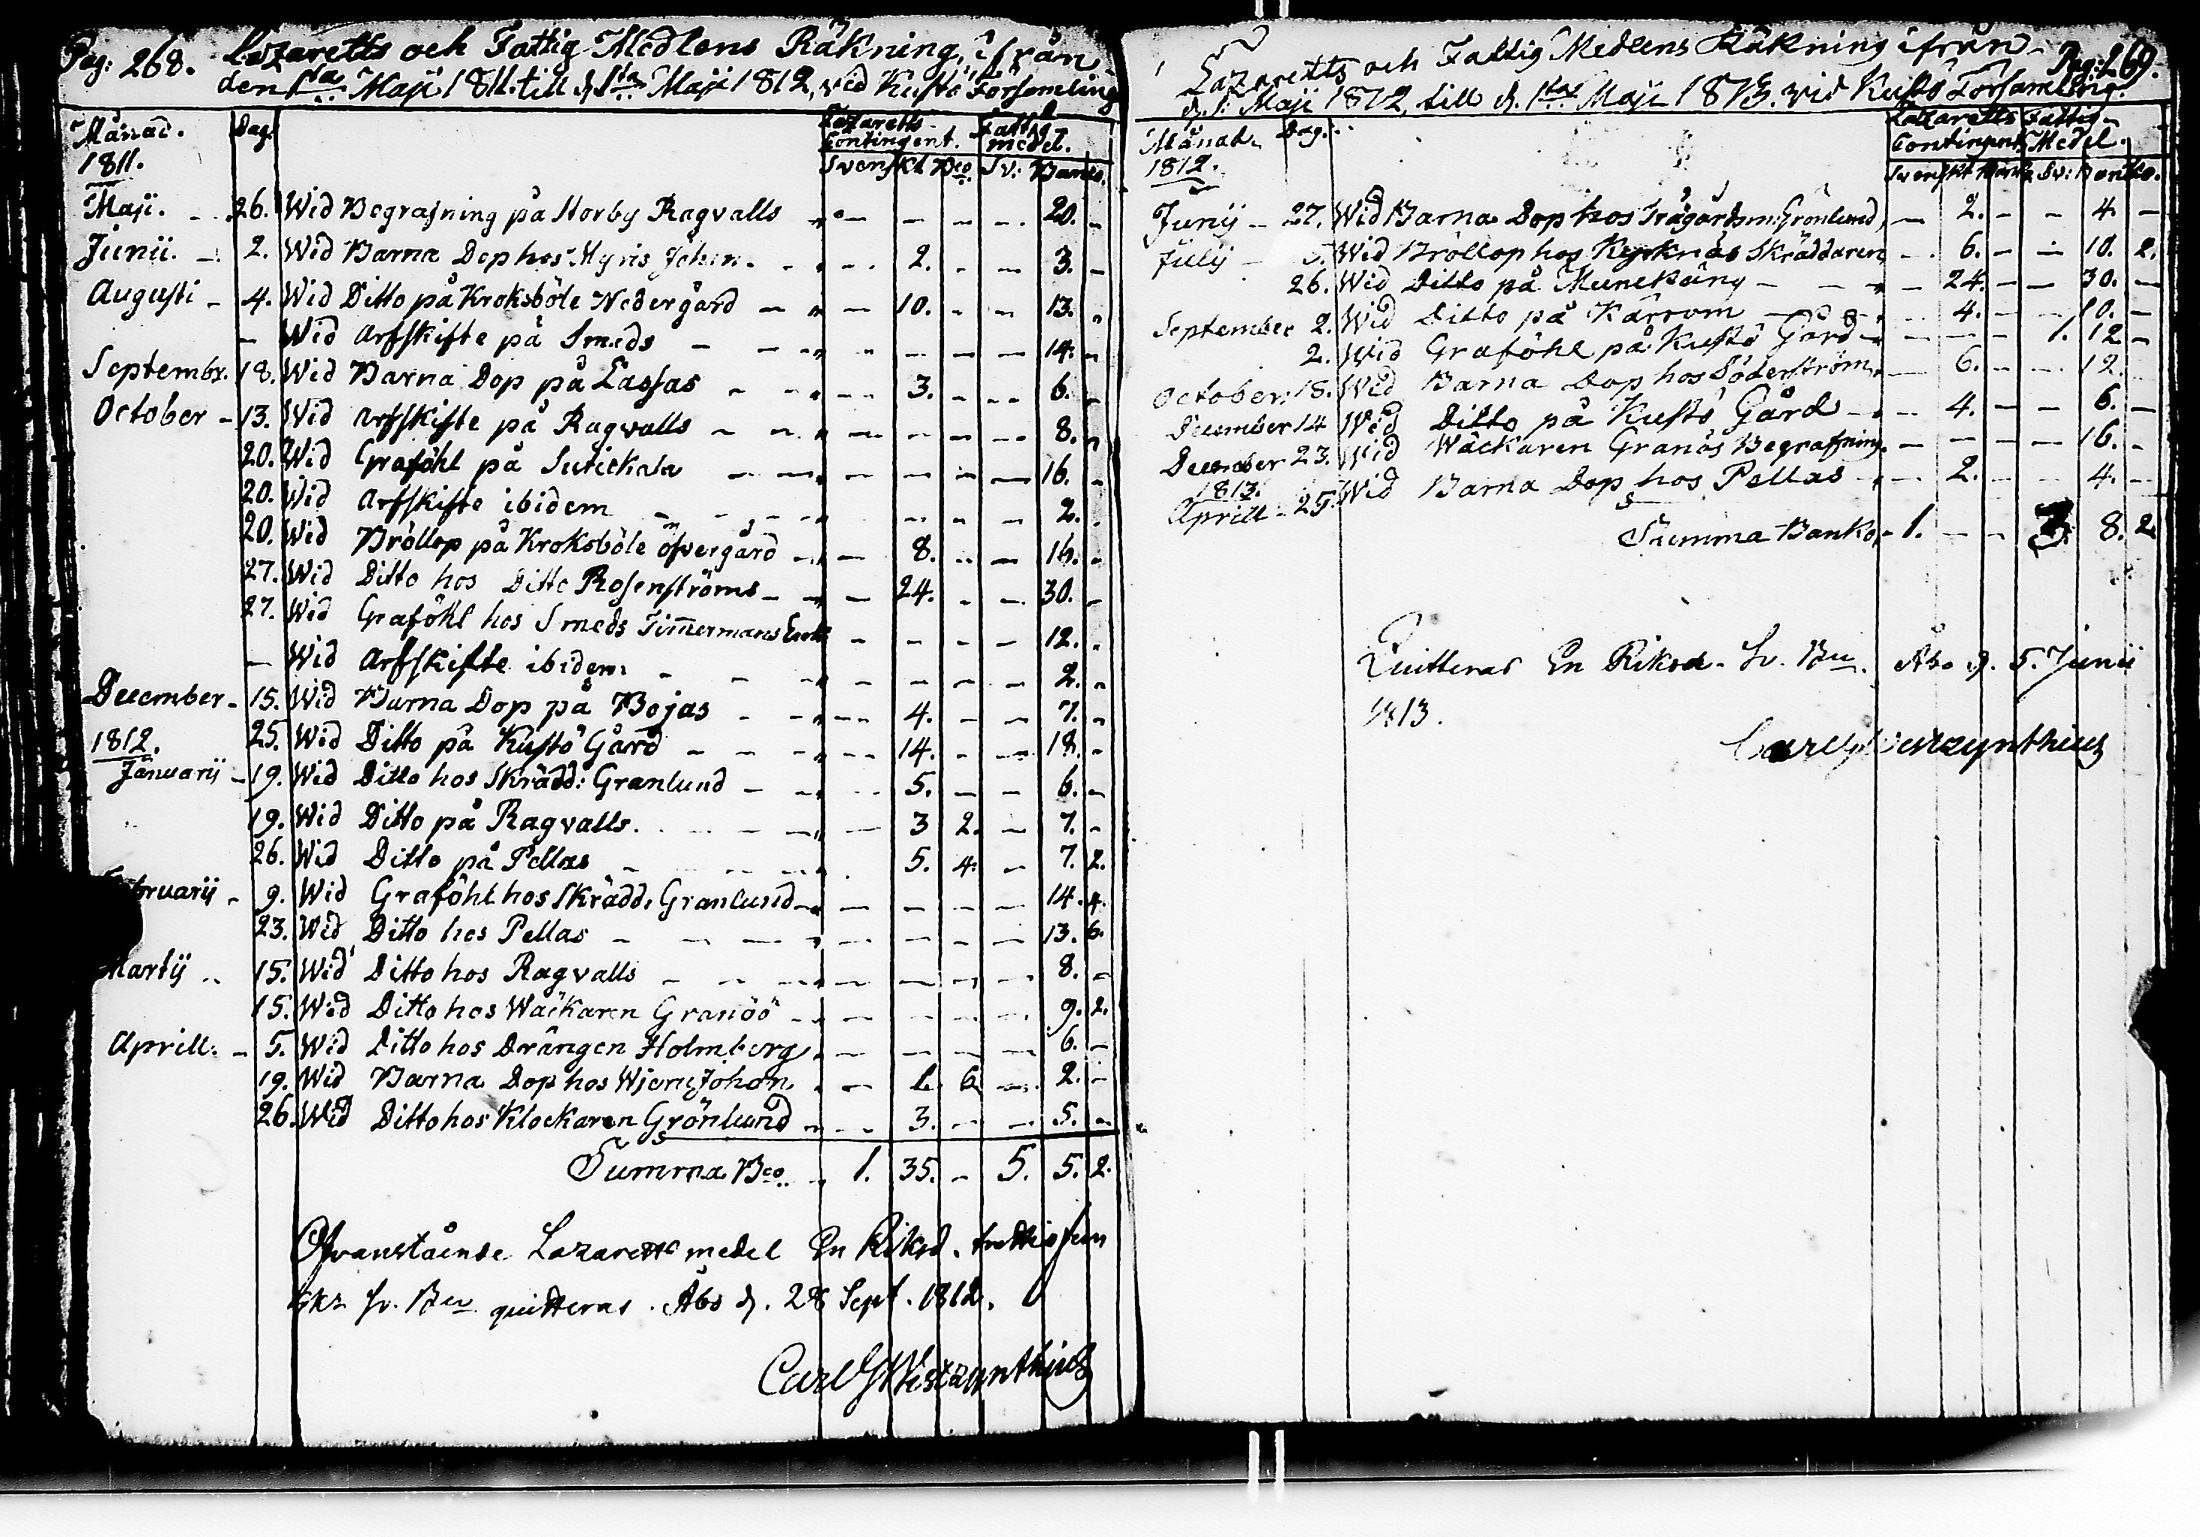 Pag: 268. Lazaretts och Fattig Medlens Räkning, ifrån
den 1sta Maji 1811. till d. 1sta Maji 1812, vid Kustö Församling
Månad. Dag. Lazaretts Contingent. Fattig medel.
1811. Svenskt Bco. Sv: Banco.
Maji. 26. Wid Begrafning på Norby Ragvalls 20.
Junii. 2. Wid Barna Dop hos Myris Johan. 2. 3.
Augusti 4. Wid Ditto på Kroksböle Nedergård 10. 13.
Wid Arfskifte på Smeds 14.
Septembr. 18. Wid Barna Dop på Lassas 3. 6.
October 13. Wid Arfskifte på Ragvalls 8.
20. Wid Graföhl på 16.
20. Wid Arfskifte ibidem 2.
20. Wid Bröllop på Kroksböle öfvergård 8. 16.
27. Wid Ditto hos Ditto Rosenströms 24. 30.
27. Wid Graföhl hos Smeds Timmermans 12.
Wid Arfskifte ibidem 2.
December 15. Wid Barna Dop på Bojas 4. 7.
25. Wid Ditto på Kustö Gård 14. 18.
1812.
Januarij 19. Wid Ditto hos Skrädd: Granlund 5. 6.
19. Wid Ditto på Ragvalls. 3 2. 7.
26. Wid Ditto på Pellas 5. 4. 7. 2.
Februarij 9. Wid Graföhl hos Skrädd. Granlund 14. 4.
23. Wid Ditto hos Pellas 13. 6.
Martij 15. Wid Ditto hos Ragvalls 8.
15. Wid Ditto hos Wäckaren Granöö 9. 2.
Aprill. 5. Wid Ditto hos Drängen Holmberg 6.
19. Wid Barna Dop hos Johan 1. 6 2.
26. Wid Ditto hos Klockaren Grönlund 3. 5.
Summa Bco. 1. 35. 5. 5. 2.
Ofvanstående Lazaretts medel En Riksd. trettiofem
skr Sv. Bco quitteras. Åbo d. 28 Sept. 1812.
Carl G Westzynthius
Lazaretts och Fattig Medlens Räkning ifrån Pag: 269.
d. 1. Maji 1812, till d. 1sta Maji 1813. vid Kustö Församling.
Månad. Dag. Lazaretts Contingent. Fattig Medel.
1812. Svenskt Banko Sv: Banko.
Junij 27. Wid Barna Dop hos Trägårdsm: Grönlund, 2. 4.
Julij 5. Wid Bröllop hos Kyrknäs Skräddaren 6. 10. 2.
26. Wid Ditto på Munckäng 24. 30.
September 2. Wid Ditto på Kärrom 4. 10.
2. Wid Graföhl på Kustö Gård 1. 12
October. 18. Wid Barna Dop hos Söderström. 6. 12.
December 14 Wid Ditto på Kustö Gård 4. 6.
December 23. Wid Wäckaren Granös Begrafning. 16.
1813.
Aprill 25. Wid Barna Dop hos Pellas 2. 4.
Summa Banko 1. 3. 8. 2.
Quitteras En Riksd. Sv. Bco. Åbo d. 5. Junii
1813.
Carl G Westzynthius